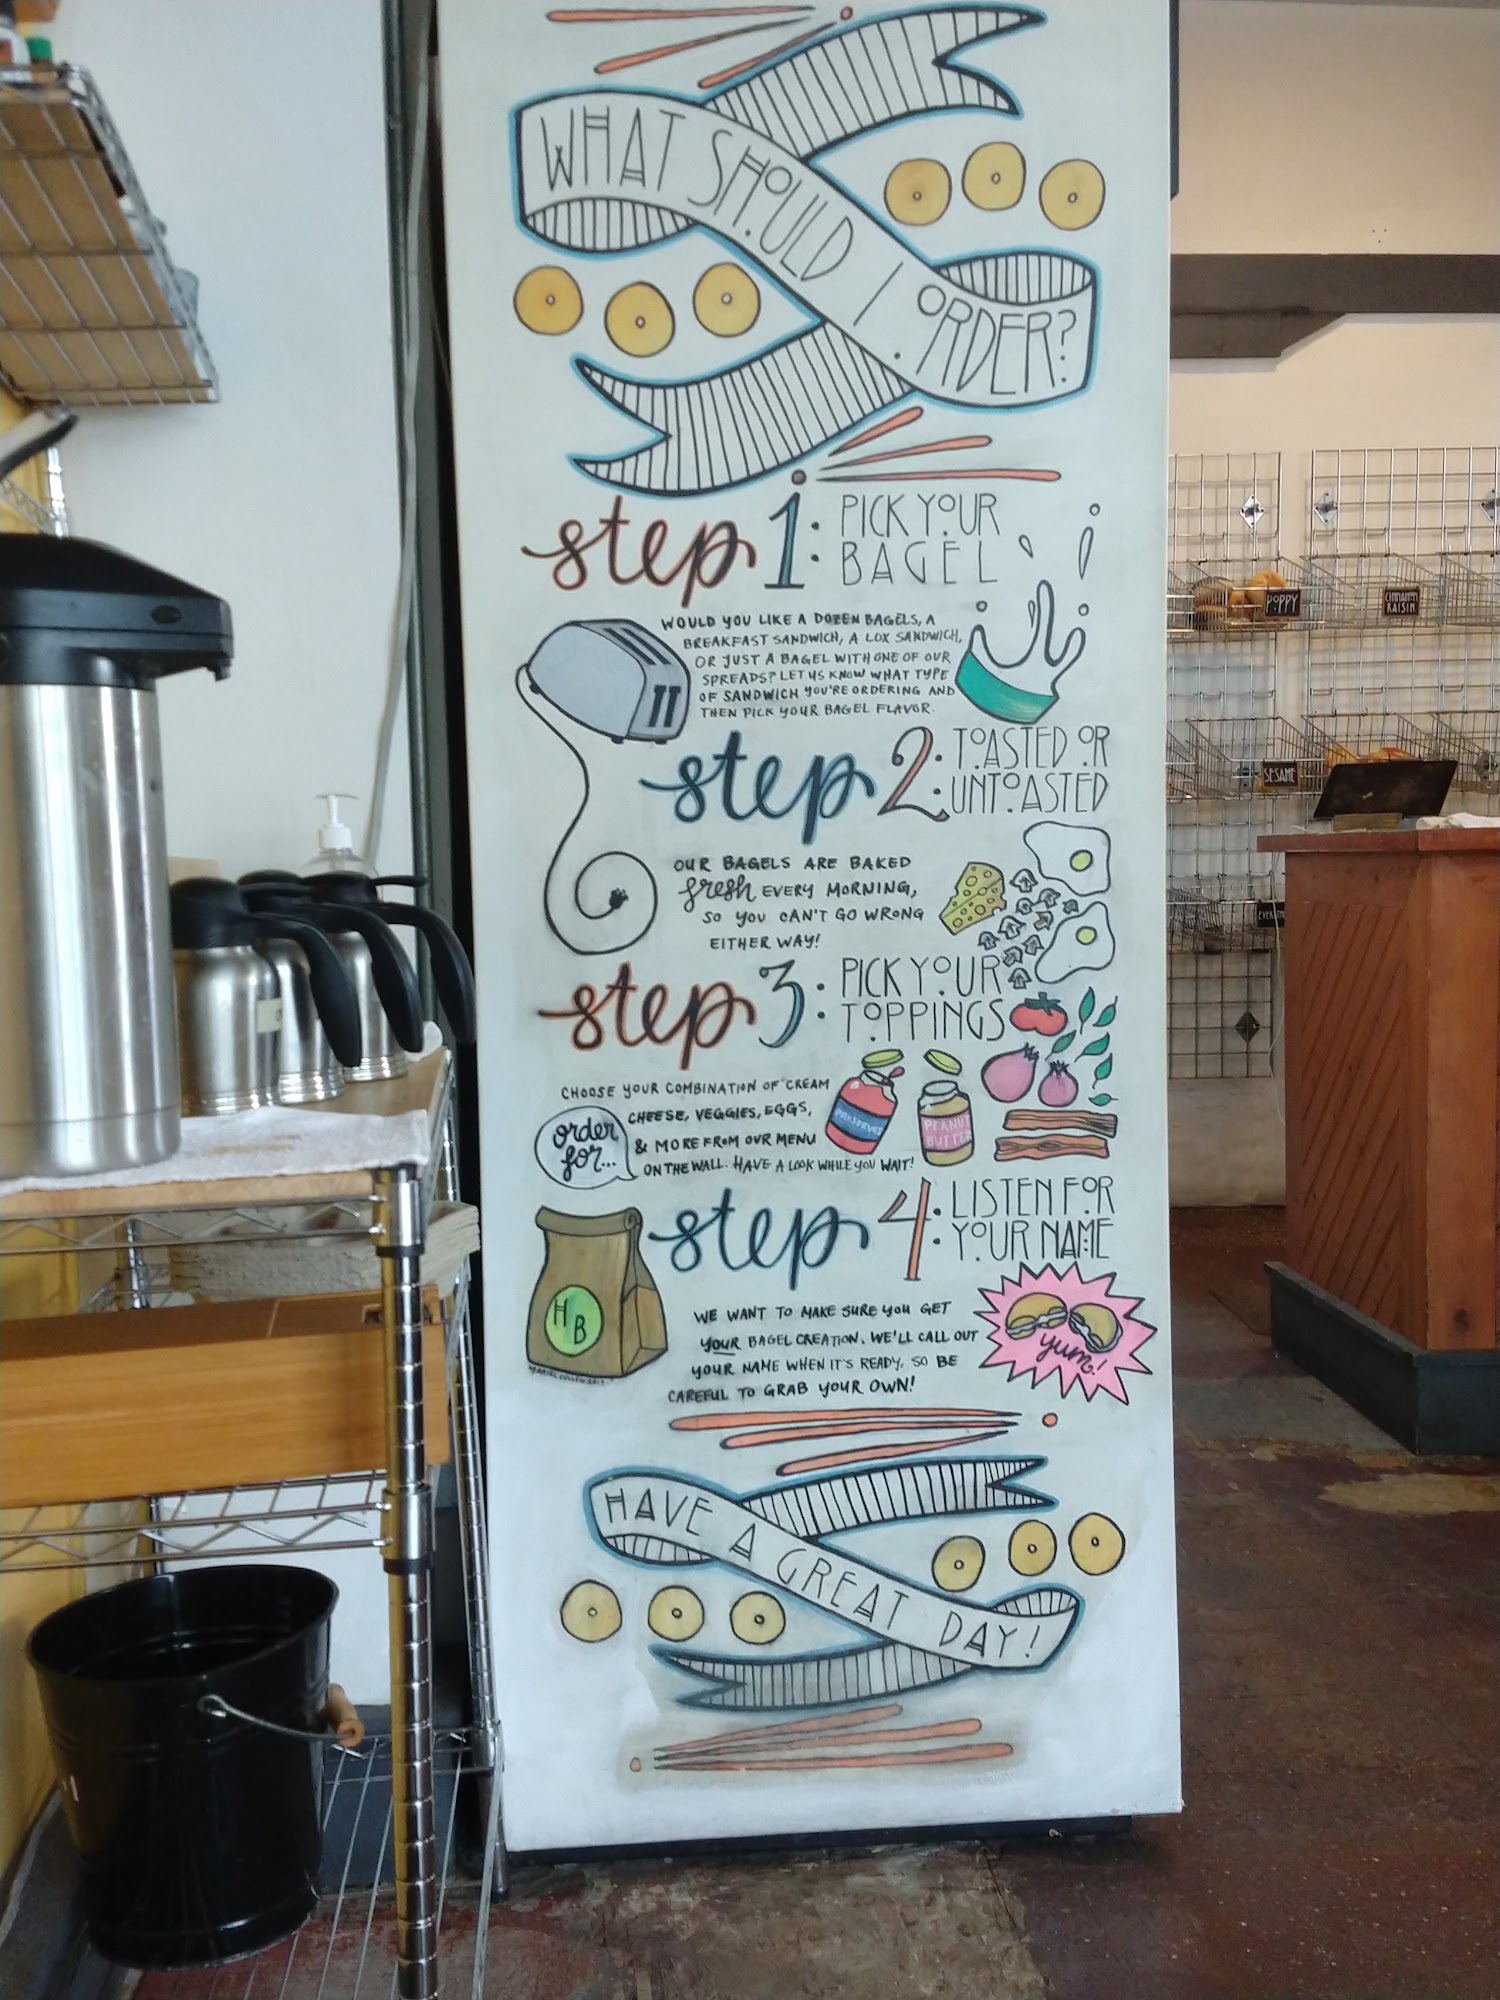 WHAT SHOULD I ORDER?
step 1: PICK YOUR
BAGEL
WOULD YOU LIKE A DOZEN BAGELS, A
BREAKFAST SANDWICH, A LOX SANDWICH,
OR JUST A BAGEL WITH ONE OF OUR
SPREADS? LET US KNOW WHAT TYPE
OF SANDWICH YOU'RE ORDERING AND
THEN PICK YOUR BAGEL FLAVOR.
step 2: TOASTED OR
UNTOASTED
OUR BAGELS ARE BAKED
fresh EVERY MORNING,
SO YOU CAN'T GO WRONG
EITHER WAY!
step 3: PICK YOUR
TOPPINGS
CHOOSE YOUR COMBINATION OF CREAM
CHEESE, VEGGIES, EGGS,
& MORE FROM OUR MENU
ON THE WALL. HAVE A LOOK WHILE YOU WAIT!
order
for...
PRESERVES
PEANUT
BUTTER
step 4: LISTEN FOR
YOUR NAME
WE WANT TO MAKE SURE YOU GET
YOUR BAGEL CREATION. WE'LL CALL OUT
YOUR NAME WHEN IT'S READY, SO BE
CAREFUL TO GRAB YOUR OWN!
HB
yum!
HAVE A GREAT DAY!
POPPY
CINNAMON
RAISIN
SESAME